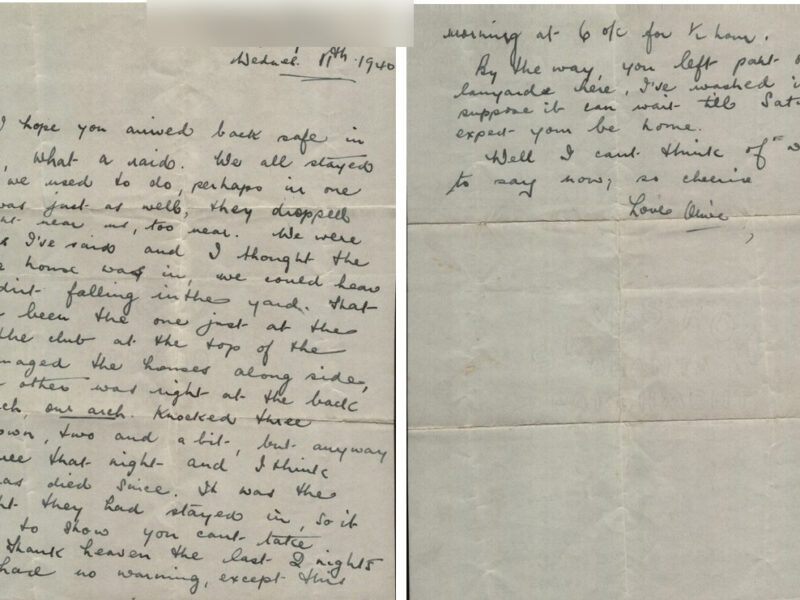 Wednes. 11th 1940
I hope you arrived back safe in
, what a raid. We all stayed
we used to do, perhaps in one
was just as well, they dropped
near us, too near. We were
I've said and I thought the
house was in, we could hear
dirt falling in the yard. That
been the one just at the
the club at the top of the
maged the houses along side,
other was right at the back
ch, our arch. Knocked three
own, two and a bit, but anyway
ree that night and I think
as died since. It was the
ht they had stayed in, so it
to show you cant take
Thank heaven the last 2 nights
had no warning, except this
morning at 6 o/c for ½ hour.
By the way, you left part
lanyards here, I've washed i
suppose it can wait till Sat
expect your be home.
Well I cant think of
to say now, so cheerio
Love Olive